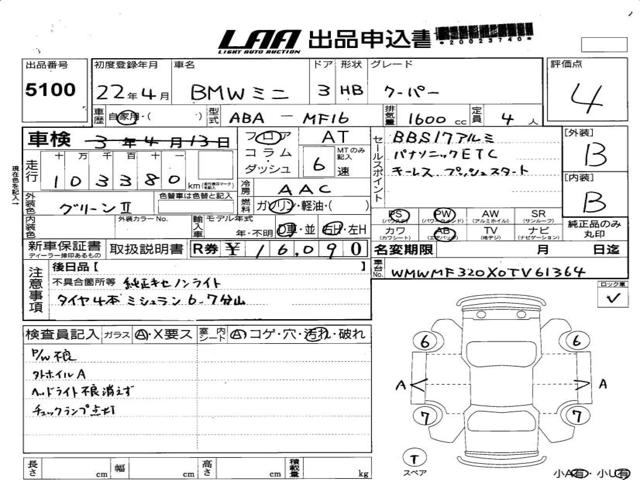 LAA LIGHT AUTO AUCTION 出品申込書 *20023740*
出品番号 5100
初度登録年月 22年4月
車名 BMWミニ
ドア 3 形状 HB
グレード クーパー
評価点 4
車歴 自家用・( )
型式 ABA - MF16
排気量 1600 cc
定員 4 人
車検 3年4月13日
走行 十 万 千 百 十 一
103380 km
フロア コラム ダッシュ
AT MTのみ記入 6 速
冷房 AAC
燃料 ガソリン・軽油・( )
セールスポイント
BBS17アルミ
パナソニックETC
キーレス プッシュスタート
【外装】 B
【内装】 B
外装色 グリーンⅡ
色替車は色替と記入
外装カラーNo. 内装色
輸入車 モデル年式 年・不明 D車・並 右H・左H
PS (パワーステアリング) PW (パワーウィンドウ) AW (アルミホイル) SR (サンルーフ)
カワ (カワシート) AB (エアバック) TV (地デジ) ナビ (ナビゲーション)
純正品のみ丸印
新車保証書 ディーラー捺印あるもの
取扱説明書
R券 ¥16,090
名変期限 月 日迄
車台No. WMWMF320X0TV61364
注意事項
後日品【 】
不具合箇所等 純正キセノンライト
タイヤ4本ミシュラン 6-7分山
ロック車 ✓
検査員記入 ガラス A・X要ス 室内シート A コゲ・穴・汚れ・破れ
P/W不良
外ホイルA
ヘッドライト不良消えず
チェックランプ点灯
6 6
A A
7 7
T スペア
小A有・小U有
長さ cm 幅 cm 高さ cm 積載量 kg
現在色を記入